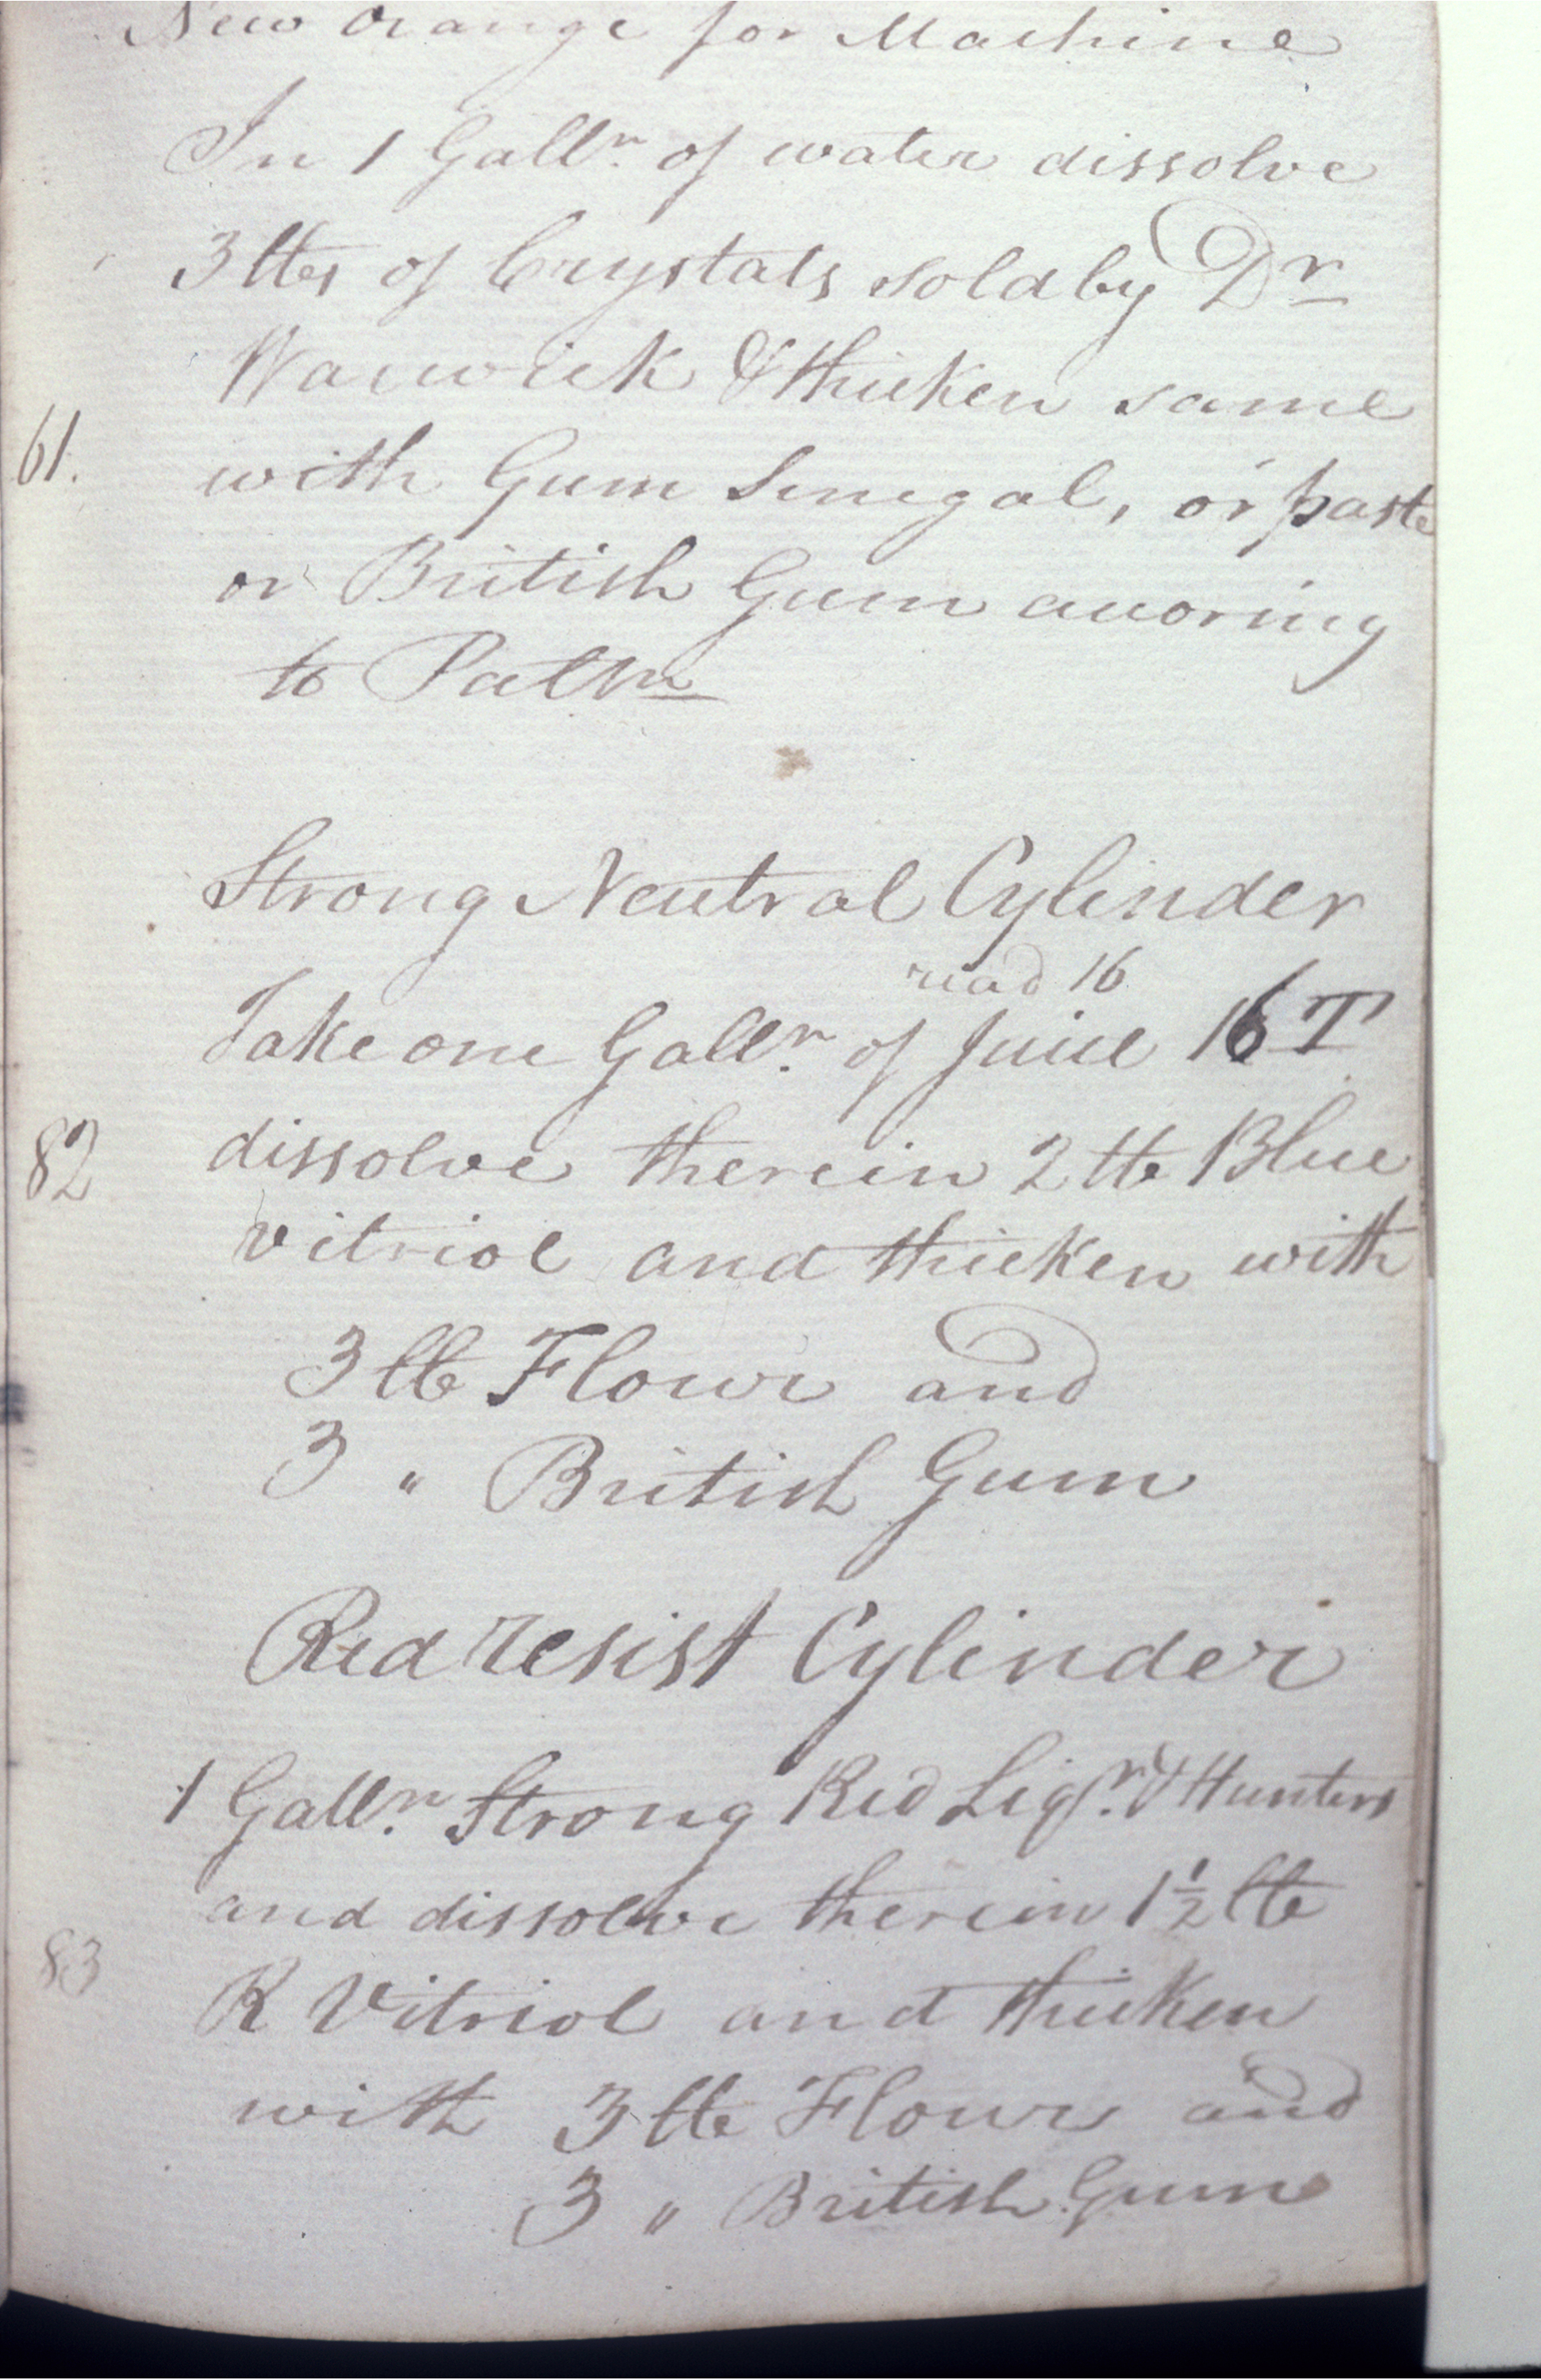 New Orange for Machine
In 1 Galln. of water dissolve
3 lbs of Crystals sold by Dr
Warwick & thicken same
61.
with Gum Senegal, or paste
or British Gum accoring
to Pattn
Strong Neutral Cylinder
read 16
Take one Galln. of Juice 16 T
82
dissolve therein 2 lb Blue
vitriol and thicken with
3 lb Flour and
3 " British Gum
Red resist Cylinder
1 Galln. Strong Red Liqr. & Hunters
and dissolve therein 1½ lb
83
R Vitriol and thicken
with 3 lb Flour and
3 " British Gum